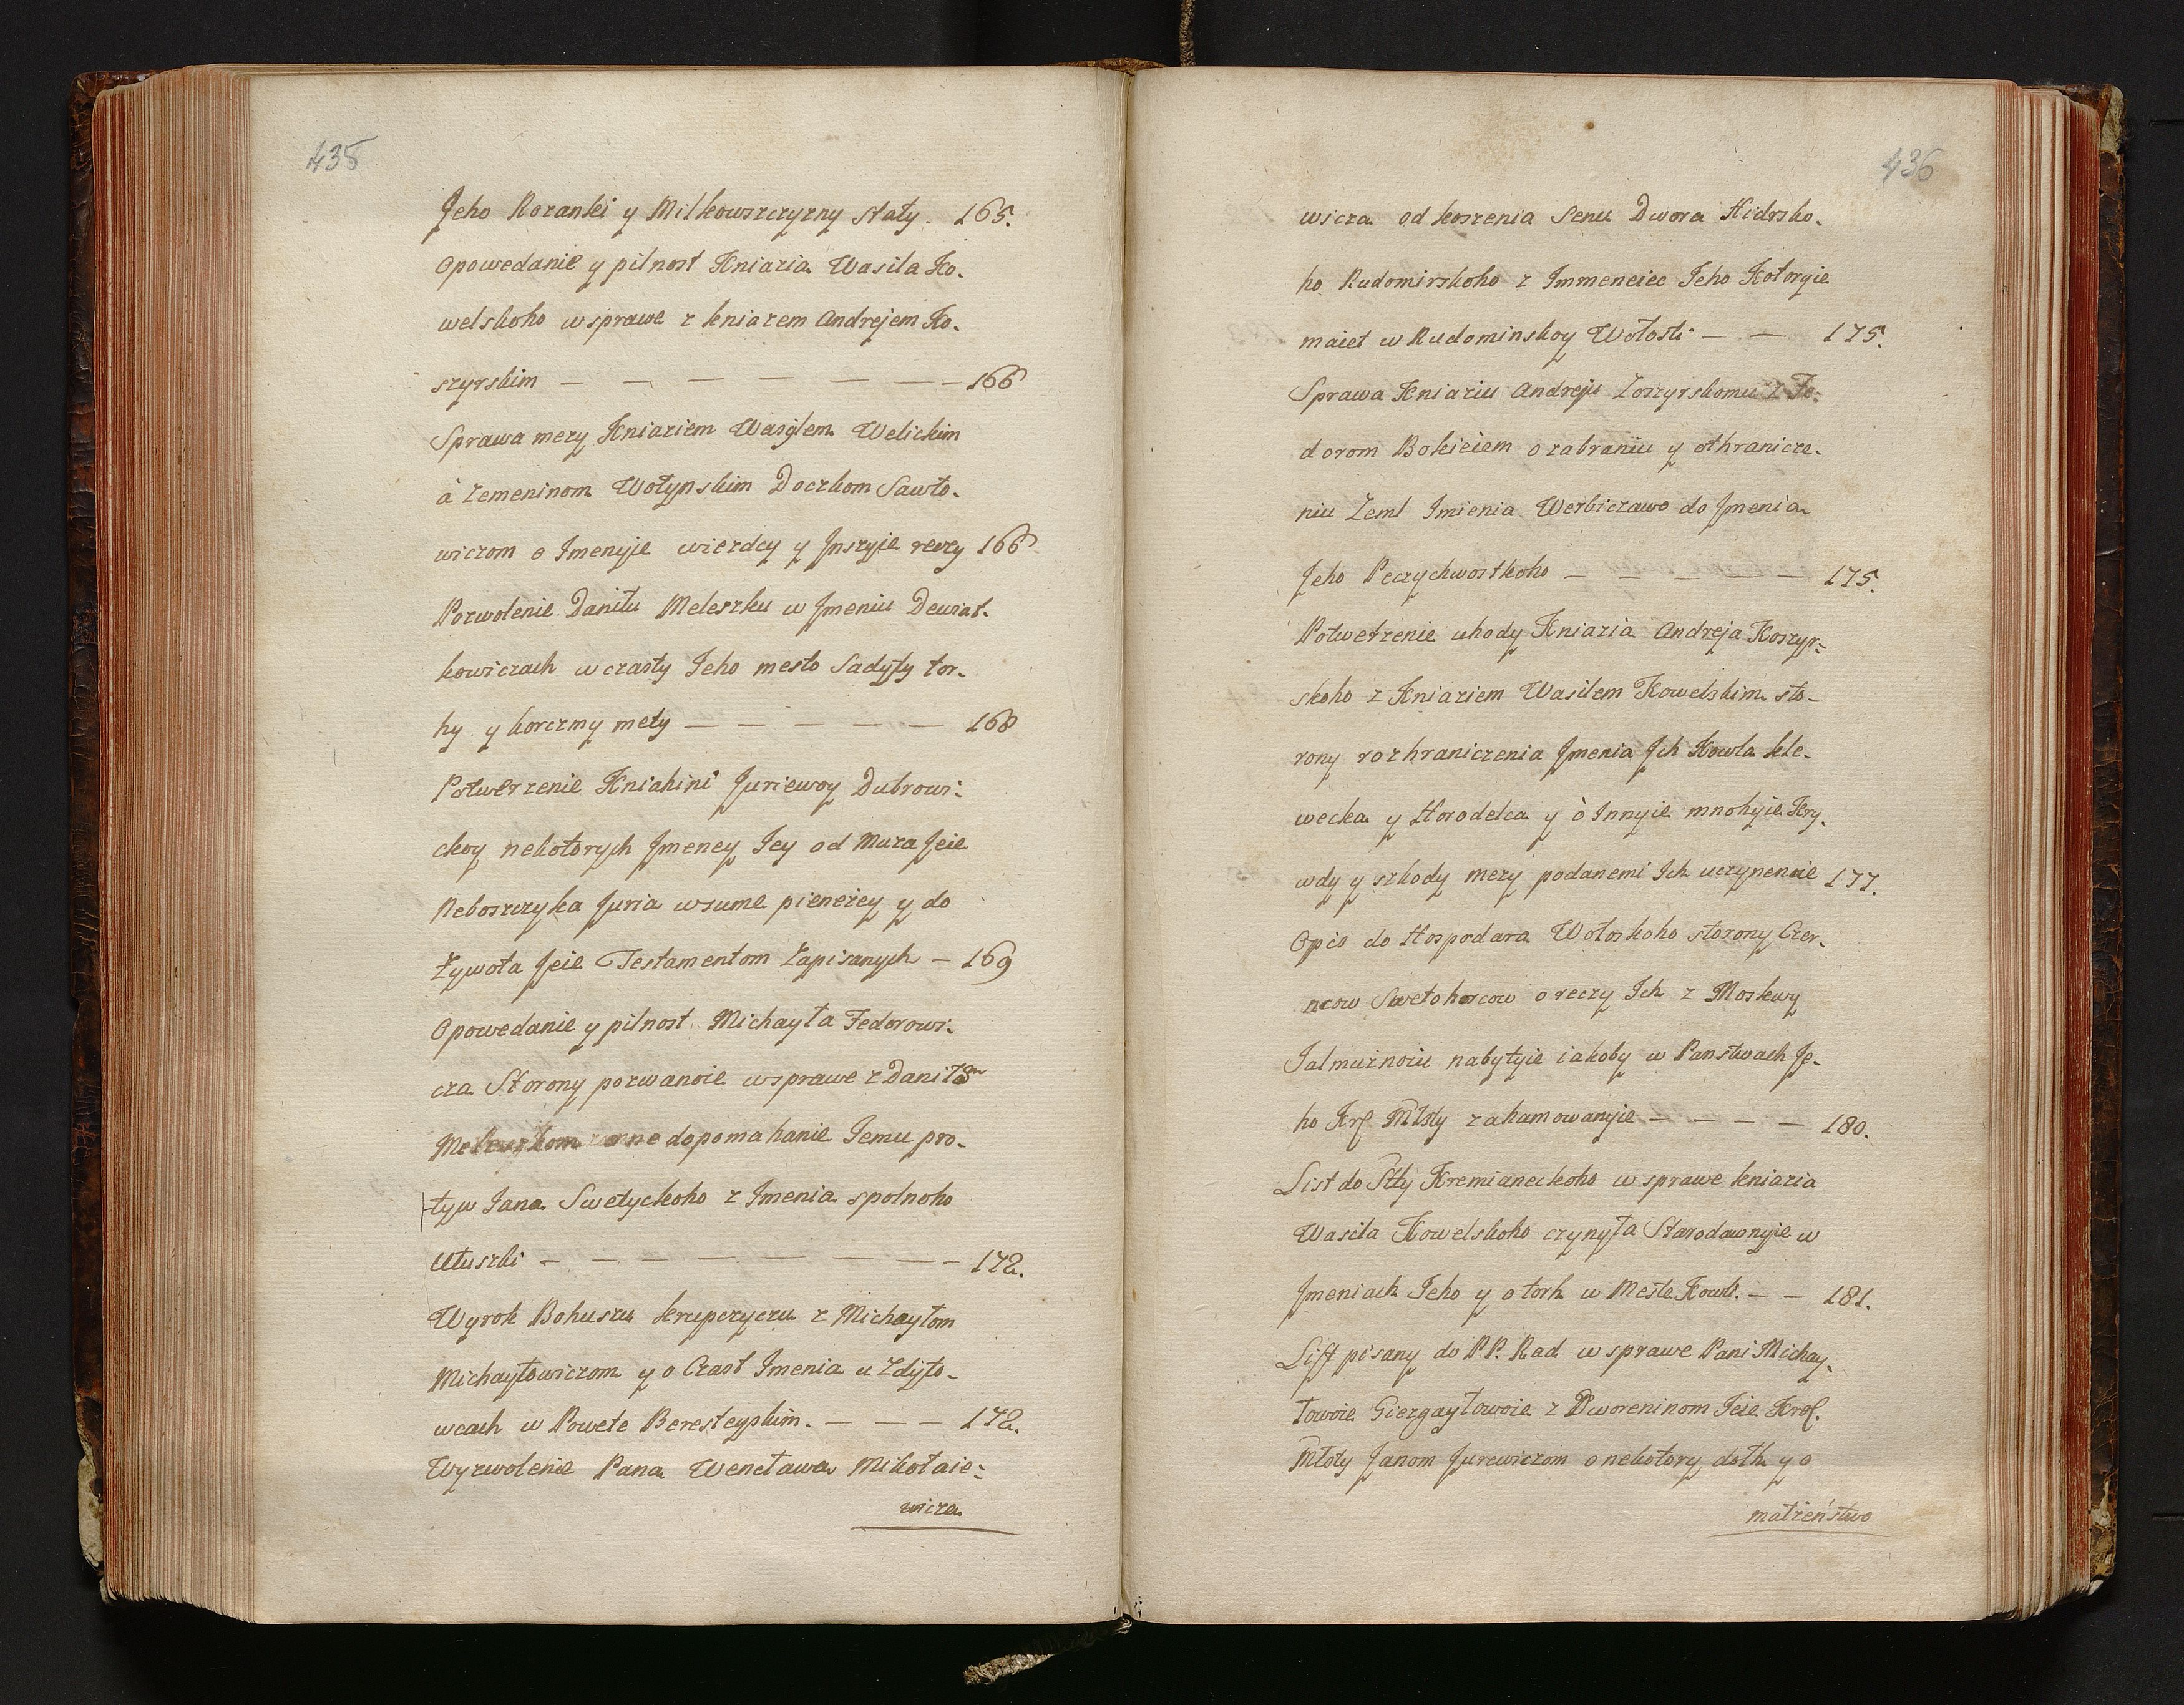 435
Jeho Rozanki y Milkowszczyzny stały. 165.
Opowedanie y pilnost Kniazia Wasila Ko-
welskoho w sprawe z kniazem Andrejem Ko-
szyrskim — — — — — — 166
Sprawa mezy Kniaziem Wasylem Welickim
à Zemeninom Wołynskim Doczkom Sawło-
wiczom o Imenyje wierdcy y Jnszyie reczy 166
Pozwolenie Daniłu Meleszku w Jmeniu Dewiat-
kowiczach w czasty Jeho mesto Sadyty tor-
hy y korczmy mety — — — — — 168
Potwerzenie Kniahini Juriewoy Dubrowi-
ckoy nekotorych Jmeney Jey od Muza Jeie
Neboszczyka Juria w sume pienezey y do
Zywota Jeie Testamentom Zapisanych — 169
Opowedanie y pilnost Michayła Fedorowi-
cza Storony pozwanoie w sprawe z Daniłom
Meleszkom o ne dopomahanie Jemu pro-
tyw Jana Swetyckoho z Imenia spolnoho
Ułuszki — — — — — — 172.
Wyrok Bohuszu krupczyczu z Michayłom
Michayłowiczom y o Czast Imenia u Zdyto-
wcach w Powete Beresteyskim. — — — 172.
Wyzwolenie Pana Wencława Mikołaie-
wicza
436
wicza od koszenia Senu Dwora Hidrsko-
ho Rudomirskoho z Immeneiec Jeho Kotoryie
maiet w Rudominskoy Wołosti — — 175.
Sprawa Kniaziu Andreju Zoszyrskomu z Fe-
dorom Bokieiem o zabraniu y othranicze-
niu Zeml Imienia Werbiczawo do Jmenia
Jeho Peczychwostkoho — — — — — 175.
Potwerzenie uhody Kniazia Andreja Koszyr-
skoho z Kniaziem Wasilem Kowelskim sto-
rony rozhraniczenia Jmenia Jch Kowla kle-
wecka y Horodelca y ò Innyie mnohyie Kry-
wdy y szkody mezy podanemi Ich uczynenoie 177.
Opis do Hospodara Wołoskoho storony Czer-
ncow Swetohorcow o reczy Ich z Moskwy
Jalmuznoiu nabytyie iakoby w Panstwach Je-
ho Krf Młsty zahamowanyie — — — — 180.
List do Stty Kremianeckoho w sprawe kniazia
Wasila Kowelskoho czynyła Starodawnyie w
Jmeniach Jeho y o torh w Meste Kowl. — — 181.
List pisany do PP. Rad w sprawe Pani Michay-
łowoie Giezgayłowoie z Dworeninom Jeie Krol.
Młoty Janom Jurewiczom o nekotory dołh y o
małżeństwo